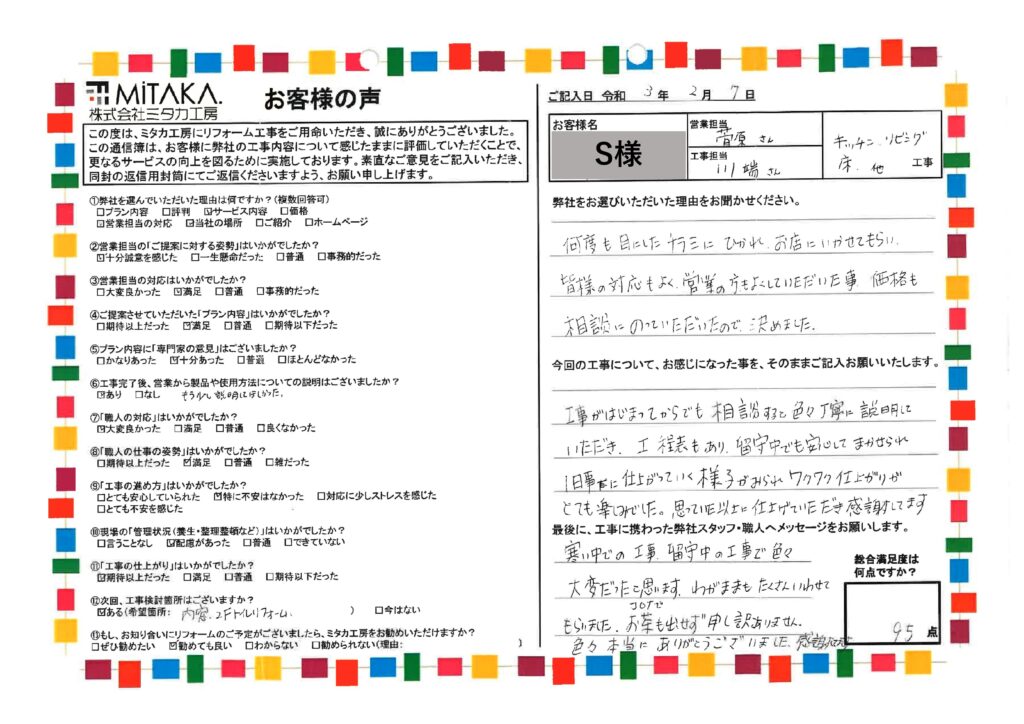 MiTAKA.
株式会社ミタカ工房
お客様の声
この度は、ミタカ工房にリフォーム工事をご用命いただき、誠にありがとうございました。
この通信簿は、お客様に弊社の工事内容について感じたままに評価していただくことで、
更なるサービスの向上を図るために実施しております。素直なご意見をご記入いただき、
同封の返信用封筒にてご返信くださいますよう、お願い申し上げます。
①弊社を選んでいただいた理由は何ですか?(複数回答可)
□プラン内容 □評判 ☑サービス内容 □価格
☑営業担当の対応 ☑当社の場所 □ご紹介 □ホームページ
②営業担当の「ご提案に対する姿勢」はいかがでしたか?
☑十分誠意を感じた □一生懸命だった □普通 □事務的だった
③営業担当の対応はいかがでしたか?
□大変良かった ☑満足 □普通 □事務的だった
④ご提案させていただいた「プラン内容」はいかがでしたか?
□期待以上だった ☑満足 □普通 □期待以下だった
⑤プラン内容に「専門家の意見」はございましたか?
□かなりあった ☑十分あった □普通 □ほとんどなかった
⑥工事完了後、営業から製品や使用方法についての説明はございましたか?
☑あり □なし もう少し説明してほしかった。
⑦「職人の対応」はいかがでしたか?
☑大変良かった □満足 □普通 □良くなかった
⑧「職人の仕事の姿勢」はいかがでしたか?
□期待以上だった ☑満足 □普通 □雑だった
⑨「工事の進め方」はいかがでしたか?
□とても安心していられた ☑特に不安はなかった □対応に少しストレスを感じた
□とても不安を感じた
⑩現場の「管理状況(養生・整理整頓など)」はいかがでしたか?
□言うことなし ☑配慮があった □普通 □できていない
⑪「工事の仕上がり」はいかがでしたか?
☑期待以上だった □満足 □普通 □期待以下だった
⑫次回、工事検討箇所はございますか?
☑ある(希望箇所: 内窓、2Fトイレリフォーム ) □今はない
⑬もし、お知り合いにリフォームのご予定がございましたら、ミタカ工房をお勧めいただけますか?
□ぜひ勧めたい ☑勧めても良い □わからない □勧められない(理由: )
ご記入日 令和 3年 2月 7日
お客様名
S様
営業担当
菅原さん
工事担当
川端さん
キッチン、リビング
床、他 工事
弊社をお選びいただいた理由をお聞かせください。
何度も目にしたチラシにひかれ、お店にいかせてもらい、
皆様の対応もよく、営業の方もよくしていただいた事、価格も
相談にのっていただいたので、決めました。
今回の工事について、お感じになった事を、そのままご記入お願いいたします。
工事がはじまってからでも相談すると色々丁寧に説明して
いただき、工程表もあり、留守中でも安心してまかせられ
1日毎に仕上がっていく様子がみられワクワク仕上がりが
とても楽しみでした。思っていた以上に仕上げていただき感謝してます
最後に、工事に携わった弊社スタッフ・職人へメッセージをお願いします。
寒い中での工事、留守中の工事で色々
大変だったと思います。わがままもたくさんいわせて
もらいました。コロナでお茶も出せず申し訳ありません。
色々本当にありがとうございました。感謝です
総合満足度は
何点ですか?
95点